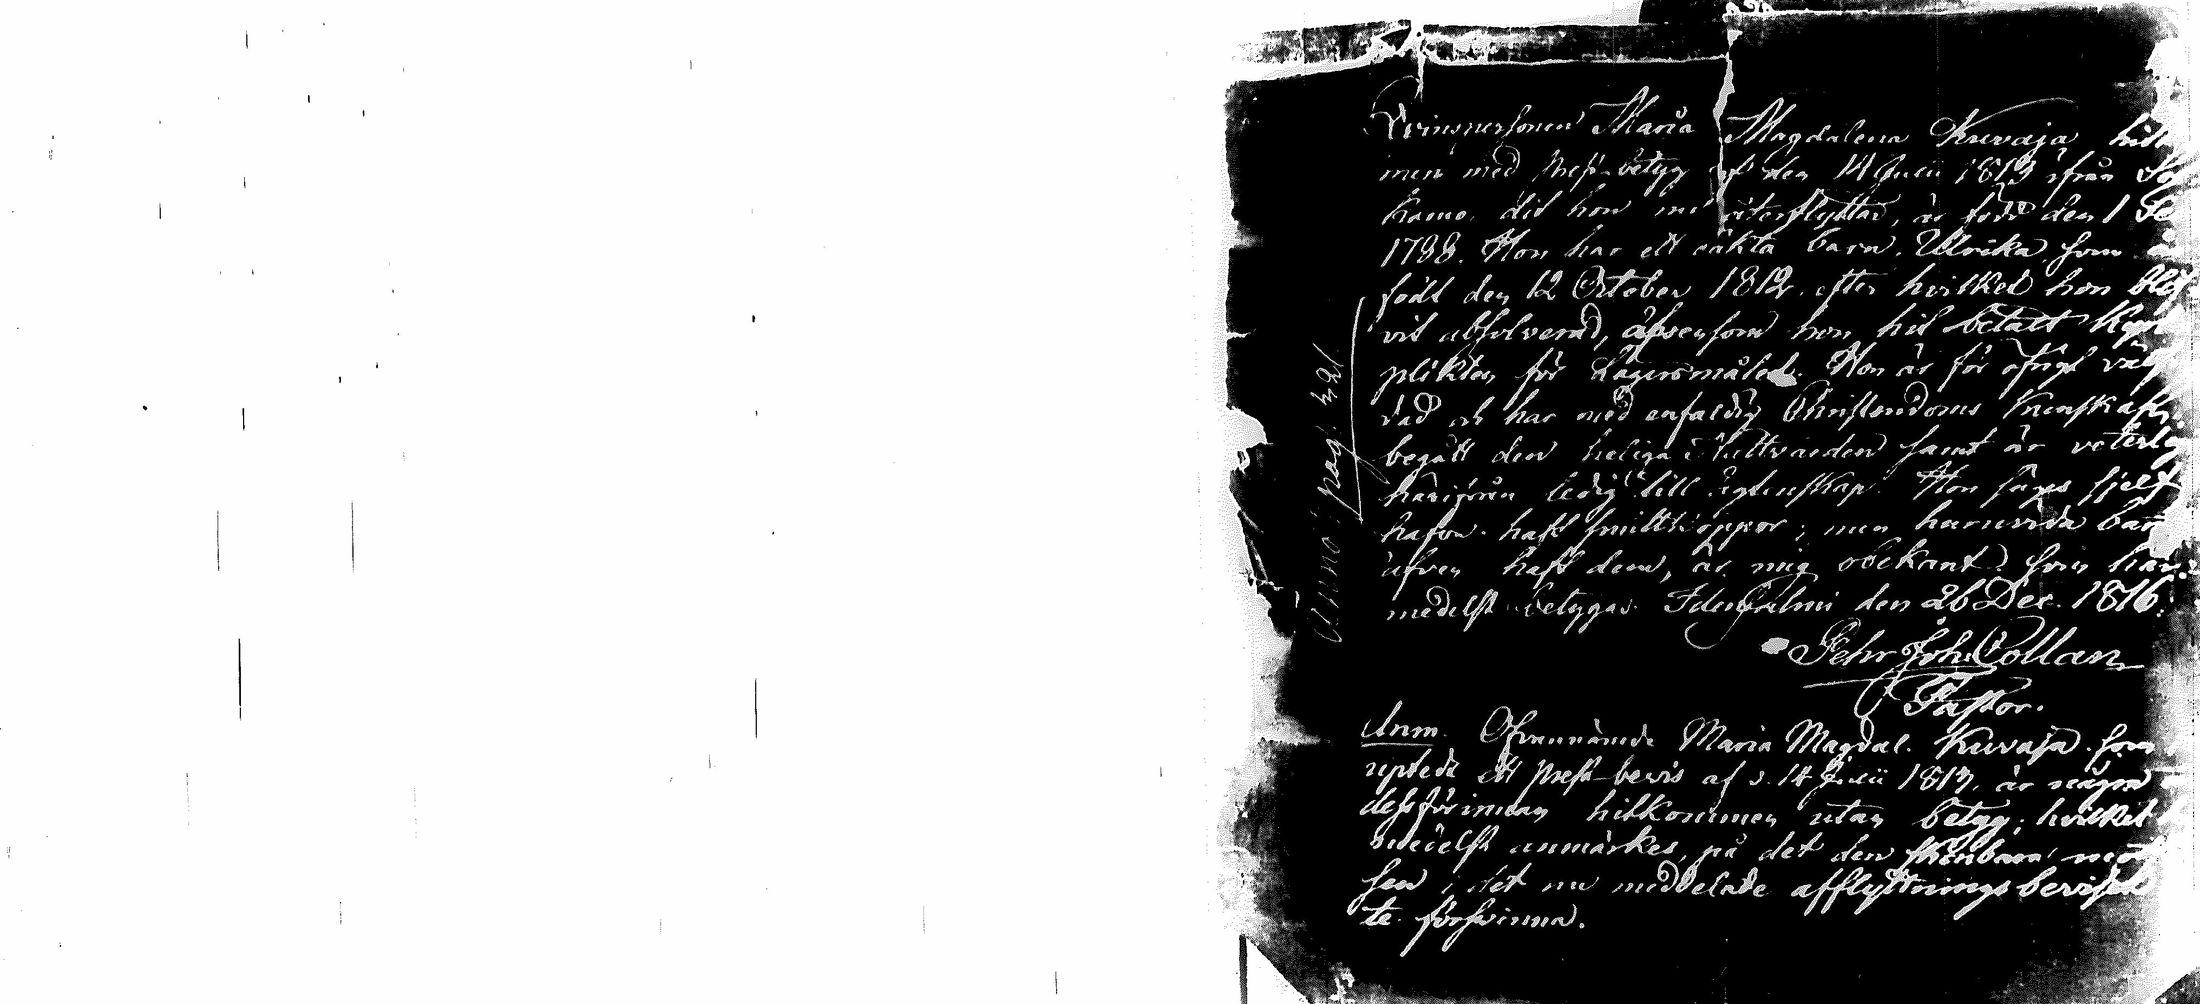 Qvinspersonen Maria Magdalena Kuvaja hit
men med Prest-betyg af den 14 Junii 1813 ifrån So
kamo, dit hon nu återflyttar, är född den 1 Se
1788. Hon har ett oäkta barn, Ulrika som
född den 12 October 1812, efter hvilket hon blif
vit absolverad, äfvensom hon hit betalt Kyrk
plikten för Lägersmålet. Hon är för öfrigt väl
dad och har med enfaldig Christendoms kunskap
begått den heliga Nattvarden samt är veterl
härifrån ledig till ägtenskap. Hon säges sjelf
hafva haft smittkoppor; men huruvida bar
äfven haft dem, är mig obekant som här
medelst betygas. Idensalmi den 26 Dec. 1816.
Pehr Joh. Collan
Pastor.
Anm. Ofvannämde Maria Magdal. Kuvaja som
uptedt ett Prest-bevis af d. 14 Junii 1813, är någon
dessförinnan hitkommen utan betyg; hvilket
medelst anmärkes, på det den skenbara mot
sen i det nu meddelade afflyttningsbeviset
te försvinna.
Annot. pag. 321